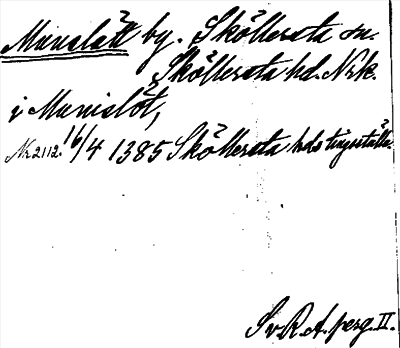 Munslätt by. Sköllersta sn.
Sköllersta hd. Nrk.
i Munislöt,
Nr 2112. 16/4 1385 Sköllersta hds tingställe.
Sv R.A. perg. II.